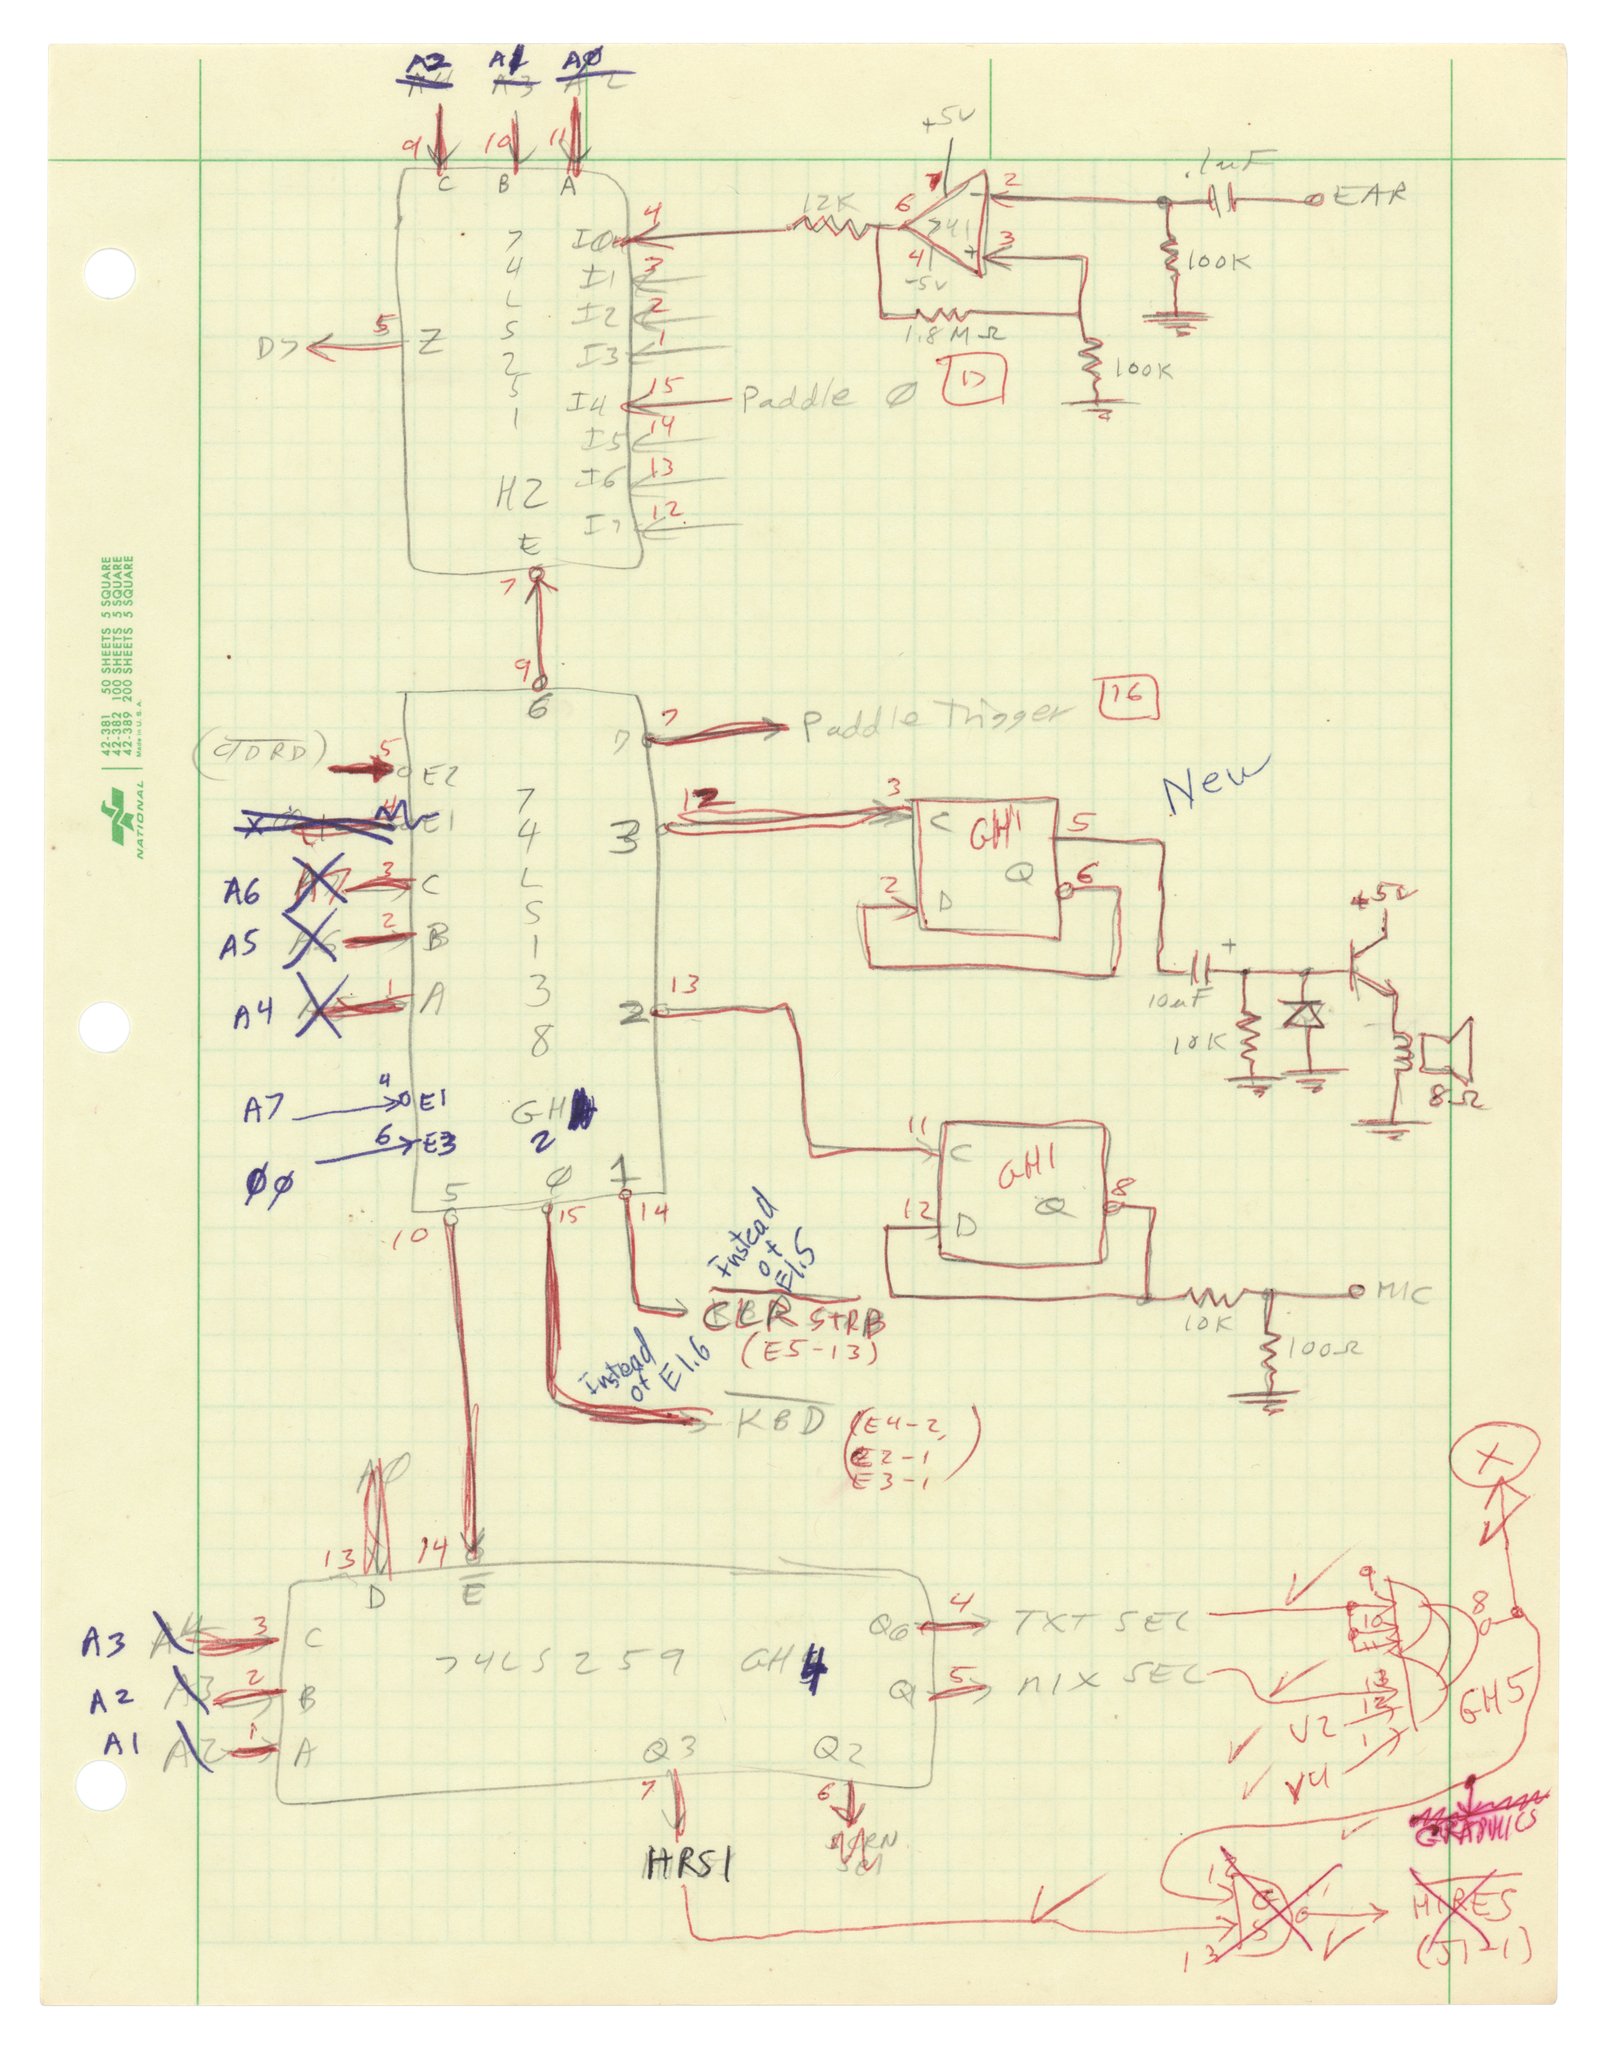 A2 A1 A0
9 10 11
C B A
74LS251
H2
I0 4
I1 3
I2 2
I3 1
I4 15 Paddle Ø
I5 14
I6 13
I7 12
D7 5 Z
E
7
12K
+5V
7
6 741
2 -
3 +
4
-5V
1.8MΩ
.1uF
EAR
100K
100K
9
6
5 E2
E1
A6 3 C
A5 2 B
A4 1 A
A7 4 E1
6 E3
74LS138
GH
2
7 7 Paddle Trigger 16
3 12
3 C GH1 5
Q 6
2 D
New
10uF +
+5V
8Ω
2 13
11 C GH1
12 D Q 8
10K
MIC
100Ω
5 Ø 1
10 15 14
Instead
of
E1.5
CLR STRB
(E5-13)
Instead
of E1.6
KBD (E4-2,
E2-1
E3-1)
AØ
13 14
D E
A3 3 C
A2 2 B
A1 1 A
74LS259 GH4
4 TXT SEL
5 MIX SEL
Q3 Q2
7 6
HRS1
X
9
10
11
13
12
1
8
V2
V4
GH5
GRAPHICS
12
13
HIRES
(J1-1)
42-381 50 SHEETS 5 SQUARE
42-382 100 SHEETS 5 SQUARE
42-389 200 SHEETS 5 SQUARE
Made in U.S.A.
NATIONAL